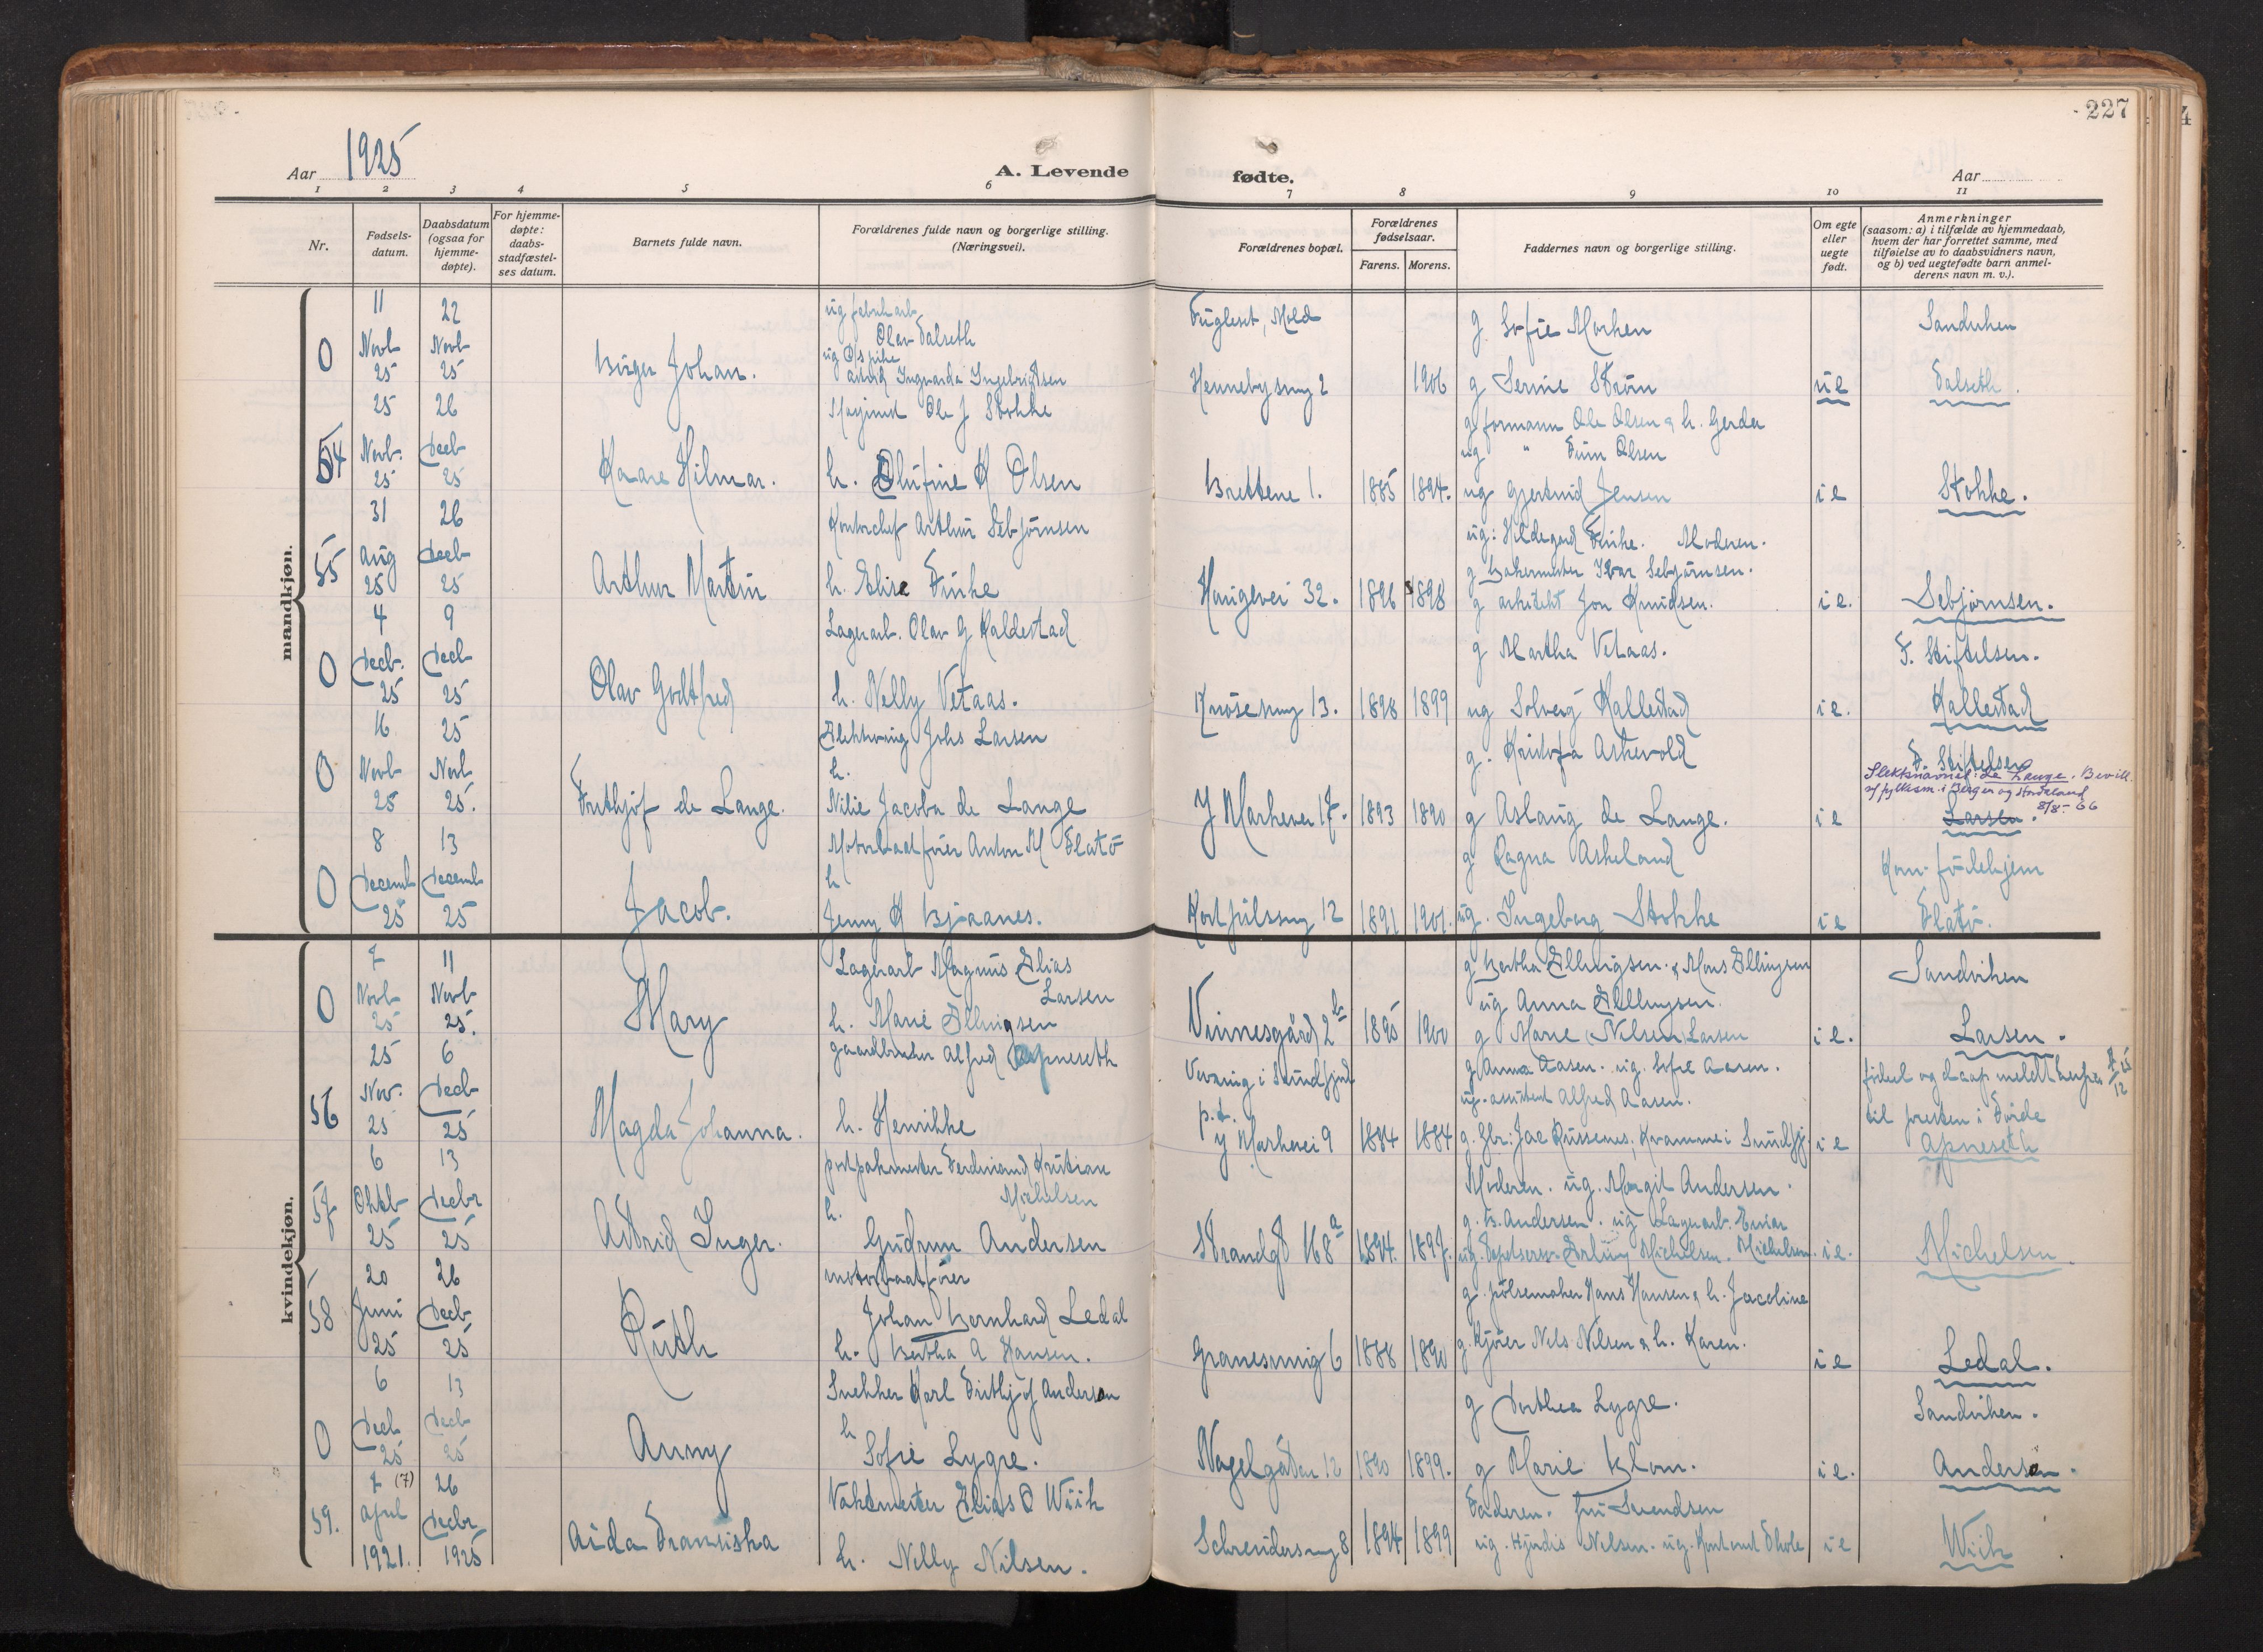 227
Aar 1925
A. Levende fødte.
Aar
1 2 3 4 5 6 7 8 9 10 11
Nr.
Fødsels-
datum.
Daabsdatum
(ogsaa for
hjemme-
døpte).
For hjemme-
døpte:
daabs-
stadfæstel-
ses datum.
Barnets fulde navn.
Forældrenes fulde navn og borgerlige stilling.
(Næringsvei).
Forældrenes bopæl.
Forældrenes
fødselsaar.
Farens. Morens.
Faddernes navn og borgerlige stilling.
Om egte
eller
uegte
født.
Anmerkninger
(saasom: a) i tilfælde av hjemmedaab,
hvem der har forrettet samme, med
tilføielse av to daabsvidners navn,
og b) ved uegtefødte barn anmel-
derens navn m. v.).
mandkjøn.
0
11
Novb
25
22
Novb
25
Birger Johan.
ug fabrikarb
Olav Dalseth
ug
Astrid Ingvarda Ingebrigtsen
Fugleset, Mold
Hennebysmg 2
1906
g. Sofie Morken
g Sernie Strøm
u e
Sandviken
Dalseth.
54
25
Novb.
25
26
Decb
25
Kaare Hilmar.
Maskinist Ole J Stokke
h. Olufine K Olsen
Brettene 1.
1885
1894.
g formann Ole Olsen & h. Gerda
ug " Finn Olsen
ug Gjertrud Jensen
i e
Stokke.
55
31
Aug
25
26
Decb
25
Arthur Martin
Kontorchef Arthur Sebjørnsen
h. Elise Finke
Haugevei 32.
1896
1898
ug: Hildegard Finke. Moderen.
g Bakermester Ivar Sebjørnsen.
g arkitekt Jon Knudsen.
i e.
Sebjørnsen.
0
4
Decb.
25
9
Decb
25
Olav Godtfred
Lagerarb. Olav G Kaldestad
h. Nelly Vetaas.
Knøsesmg 13.
1898
1899
g Martha Vetaas.
ug Solveig Kallestad
i e.
F. Stiftelsen.
Kallestad
0
16
Novb
25
25
Novb
25.
Frithjof de Lange.
Elektroing Johs Larsen
h.
Nilie Jacoba de Lange
Y Markevei 17.
1893
1890
g. Kristofa Askevold
g Aslaug de Lange.
i e
F. Stiftelsen
Slektsnavnet: de Lange. Bevill.
af fylkesm. i Berger og Hordaland
8/8-66
Larsen.
0
8
Decemb
25
13
Decemb
25
Jacob.
Motorbaatfører Anton M Flatø
h
Jenny K Bjaanes.
Kort pilssmg 12
1891
1901.
g Ragna Askeland
ug. Ingeborg Stokke
i e
Kom. fødehjem
Flatø.
kvindekjøn.
0
7
Novb
25
11
Novb
25.
Mary
Lagerarb Magnus Elias
Larsen
h. Marie Ellingsen
Vinnesgård 2b
1895
1900
g Bertha Ellingsen. & Mons Ellingsen
ug Anna Ellingsen.
g Marie (Nilsen) Larsen
i e.
Sandviken
Larsen.
56
25
Nov.
25
6
Decb
25
Magda Johanna.
gaardbruker Alfred Apneseth
h. Henrikke
Vevring i Sundfjord
p.t.
Y Markevei 9
1884
1884
g Anna Aasen. ug. Sofie Aasen.
ug. assistent Alfred Aasen.
g. Gbr: Jac Russenes, Kvamme i Sundfj.
i e
fødsel og daap meldt herfra 7/12 25
til presten i Førde
Apneseth
57
6
Oktb
25
13
Decbr
25
Astrid Inger.
postpakmester Ferdinand Kristian
Michelsen
h.
Gudrun Andersen
Strandgt 168a
1894.
1897.
Moderen. ug. Margit Andersen.
g. B. Andersen. ug Lagerarb. Einar
ug. Erling Michelsen. Michelsen.
i e.
Michelsen.
58
20
Juni
25
26
Decb
25
Ruth
motorbaatfører
Johan Bernhard Ledal
h. Bertha A Hansen.
Granesmug 6
1888
1890
g. pølsemaker Hans Hansen & h. Jacoline
g. Kjører Nels Nilsen & h. Karen.
i e
Ledal.
0
6
Decb
25
13
Decb
25
Anny
Snekker Karl Frithjof Anderson
h
Sofie Lygre.
Nagelgården 12
1890
1899.
g Dorthea Lygre.
g Marie Blom.
i e.
Sandviken.
Anderson.
59.
7 (7)
April
1921.
26
Decbr
1925
Aida Fransiska
Vaktmester Elias O Wiik
h. Nelly Nilsen.
Schreudersmg 8
1894
1899
Faderen. fru Svendsen
ug. Hjørdis Nilsen. ug.
i e
Wiik